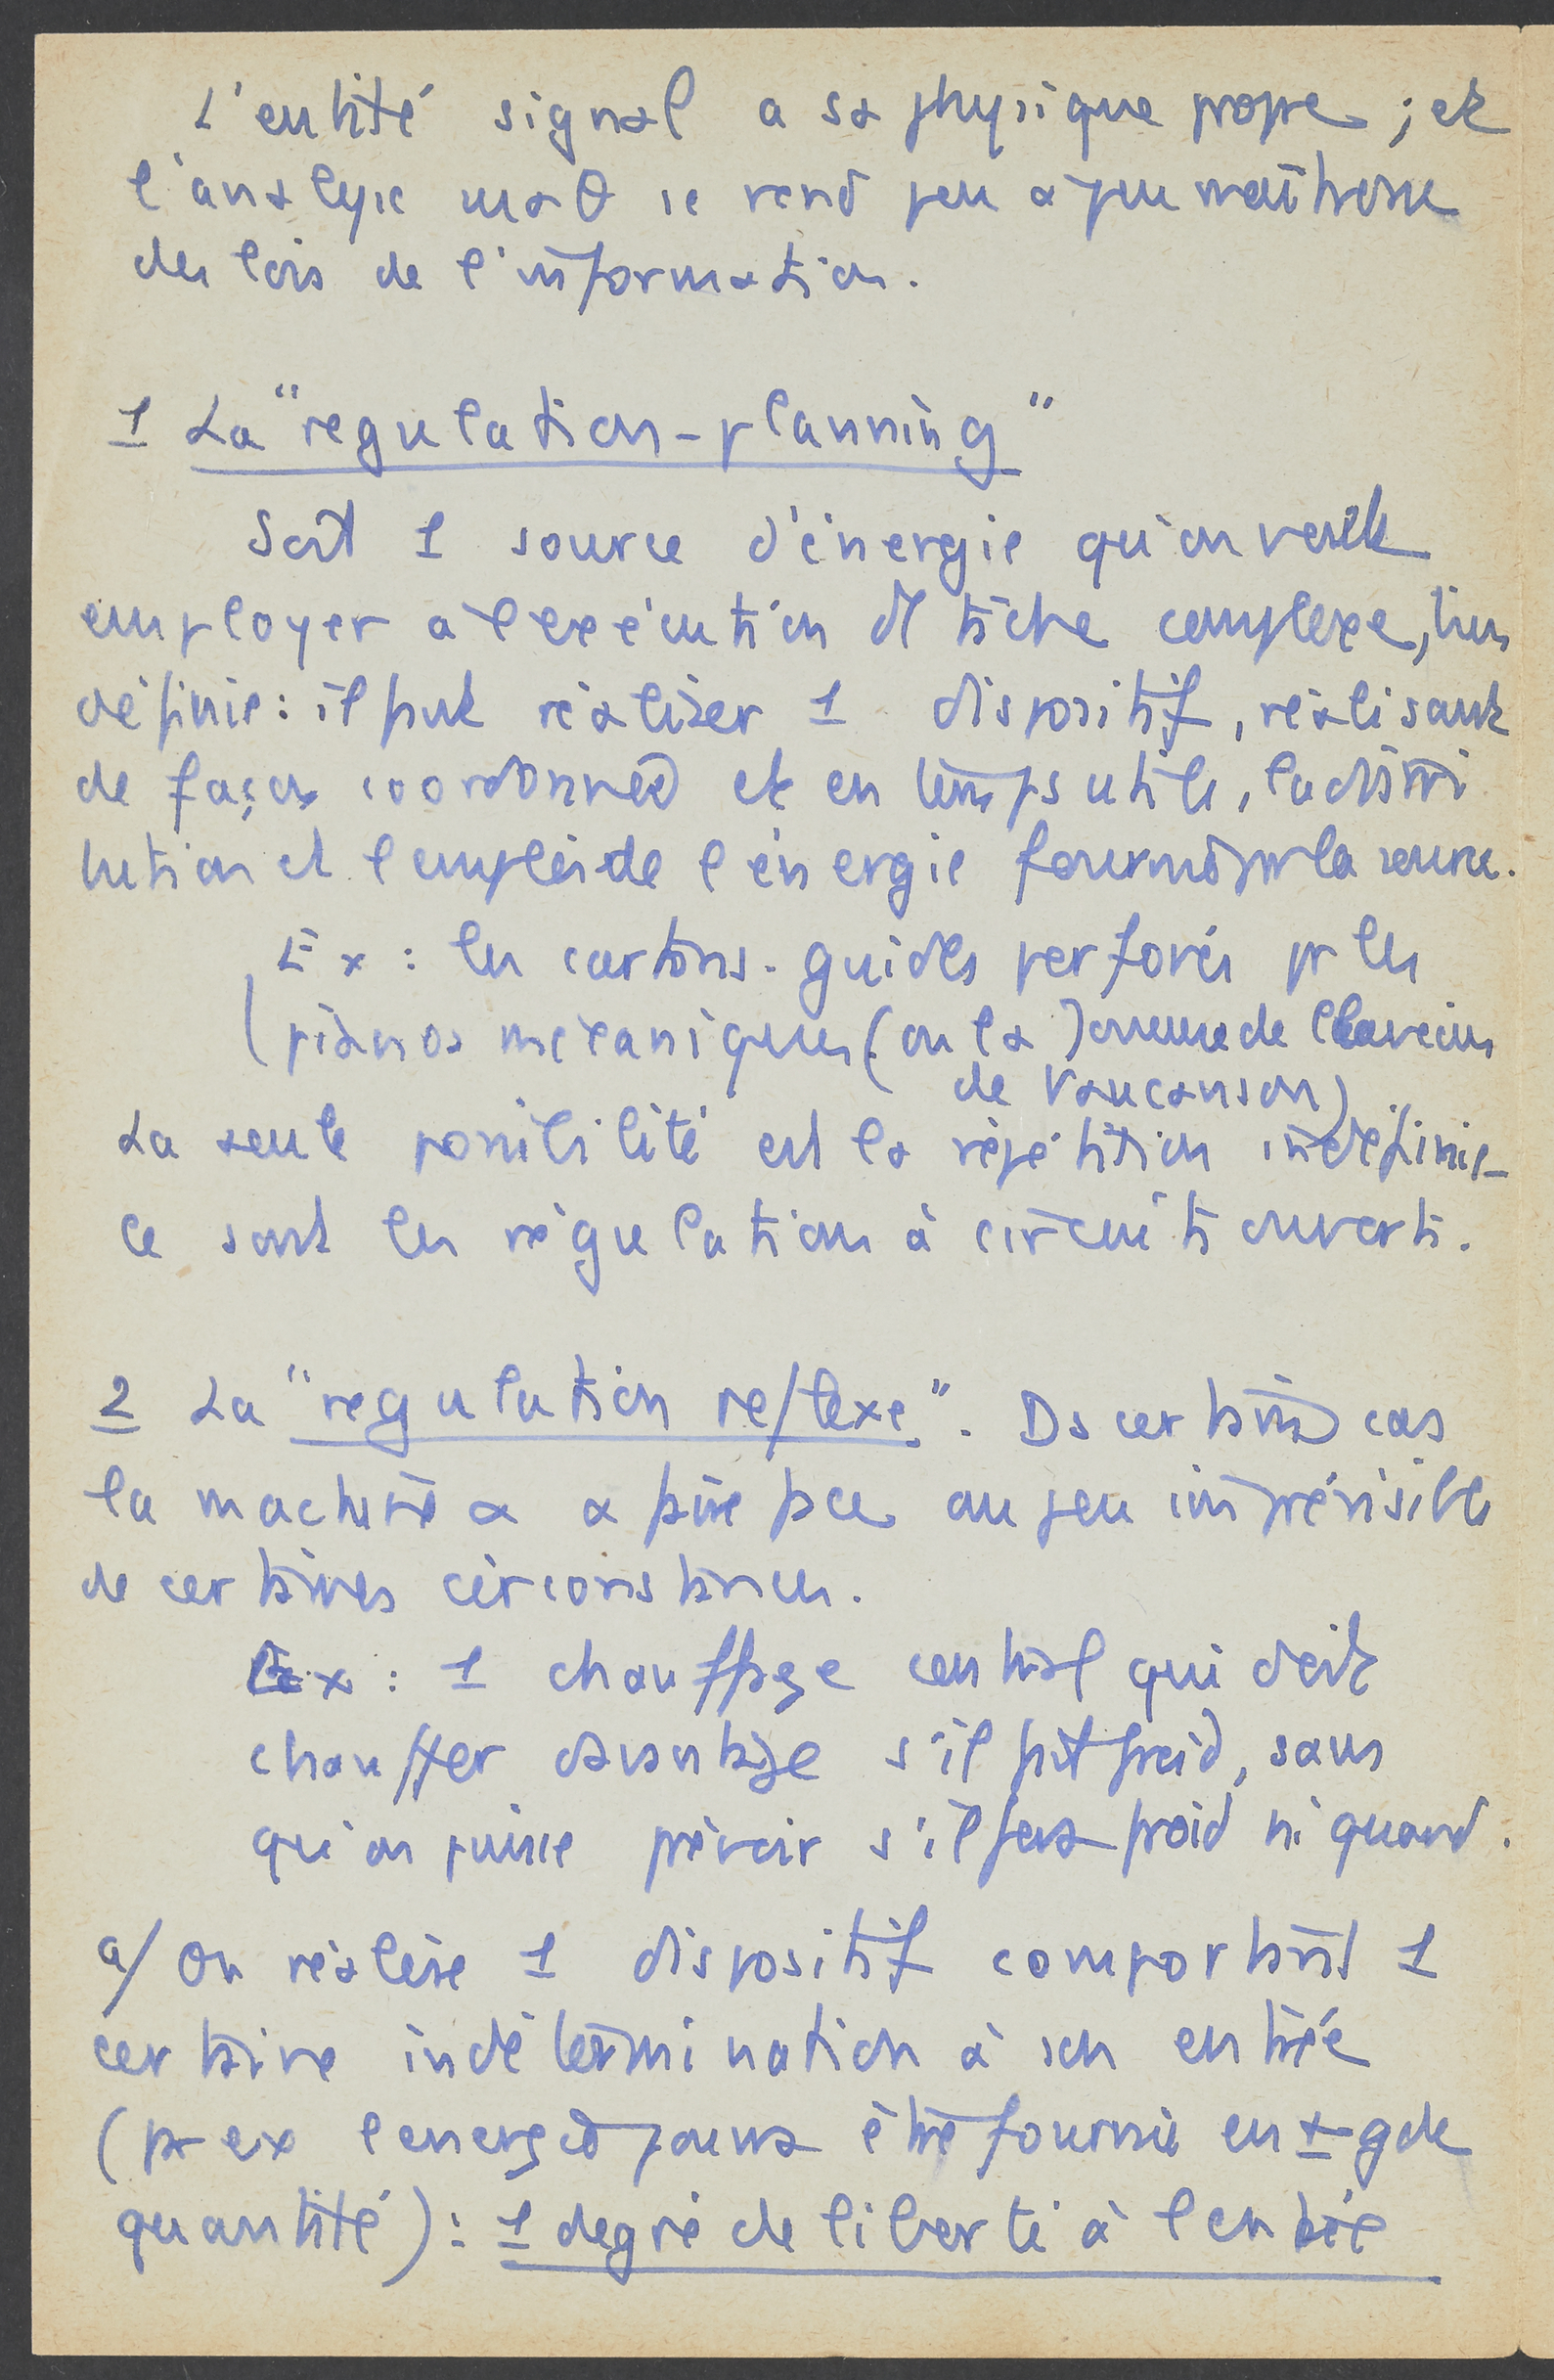 L'entité signal a sa physique propre ; et
l'analyse math se rend peu à peu maîtresse
des lois de l'information.
1 La "regulation-planning"
Soit 1 source d'énergie qu'on veuille
employer à l'exécution d'1 tâche complexe, bien
définie : il faut réaliser 1 dispositif, réalisant
de façon coordonnée et en temps utile, la distri
bution et l'emploi de l'énergie fournie par la source.
Ex : les cartons-guides perforés pr les
(pianos mécaniques (ou la joueuse de clavecin
de Vaucanson)
La seule possibilité est la répétition indéfinie_
ce sont les régulations à circuits ouverts.
2 La "regulation reflexe". Ds certains cas
la machine a à faire face au jeu imprévisible
de certaines circonstances.
Ex : 1 chauffage central qui doit
chauffer davantage s'il fait froid, sans
qu'on puisse prévoir s'il fera froid ni quand.
a/ On réalise 1 dispositif comportant 1
certaine indétermination à son entrée
(pr ex l'énergie pourra être fournie en + gde
quantité) : 1 degré de liberté à l'entrée